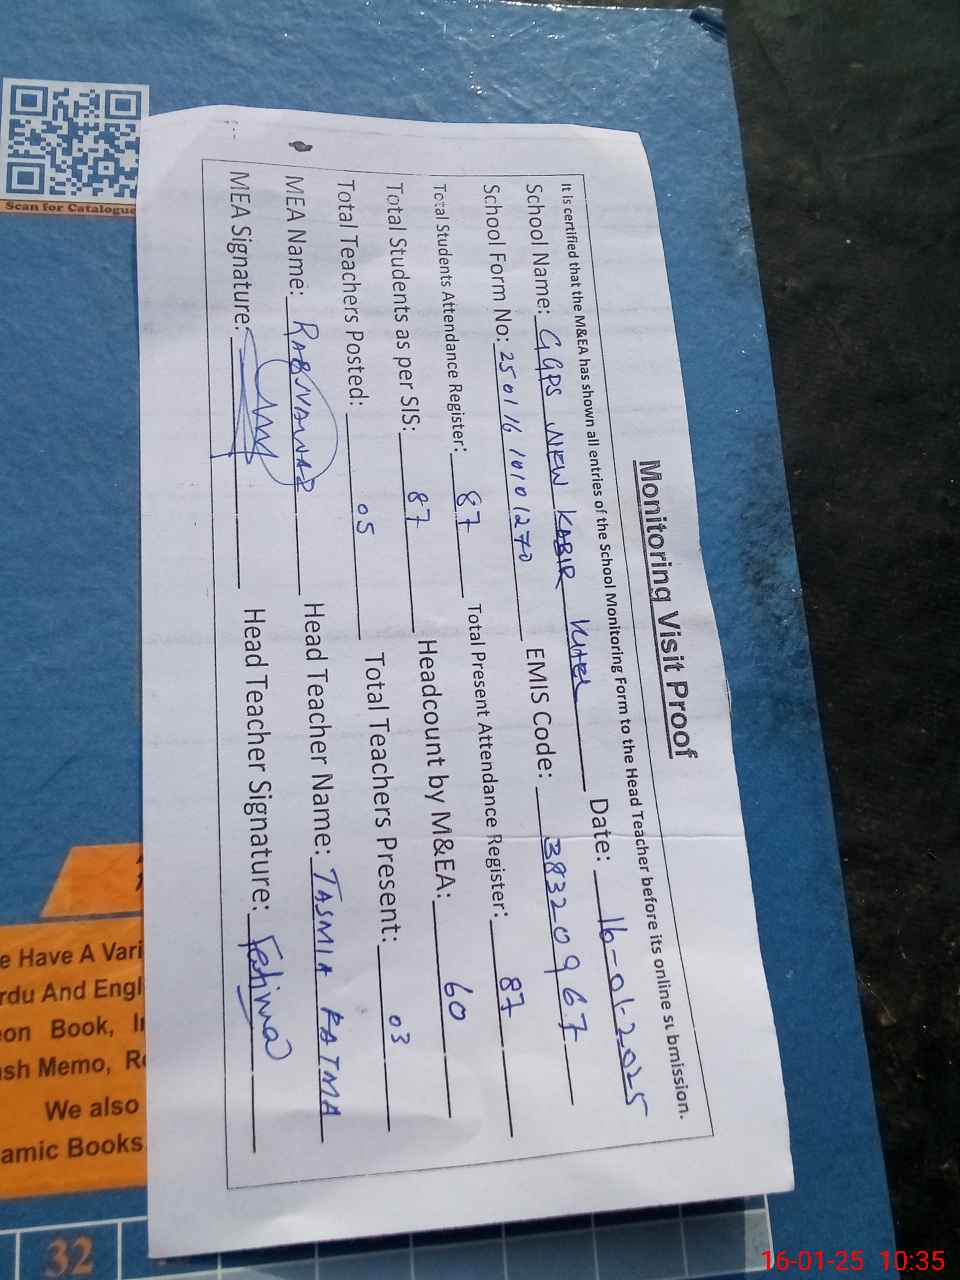 Monitoring Visit Proof
It is certified that the M&EA has shown all entries of the School Monitoring Form to the Head Teacher before its online submission.
School Name: GGPS NEW KABIR Date: 16-01-2025
School Form No: 25011610101270 EMIS Code: 38320967
Total Students Attendance Register: 87 Total Present Attendance Register: 87
Total Students as per SIS: 87 Headcount by M&EA: 60
Total Teachers Posted: 05 Total Teachers Present: 03
MEA Name: RABNAWAZ Head Teacher Name: TASMIA FATMA
MEA Signature: Head Teacher Signature: Fatima
Scan for Catalogue
e Have A Vari
rdu And Engl
on Book, I
sh Memo, R
We also
amic Books
32
16-01-25 10:35